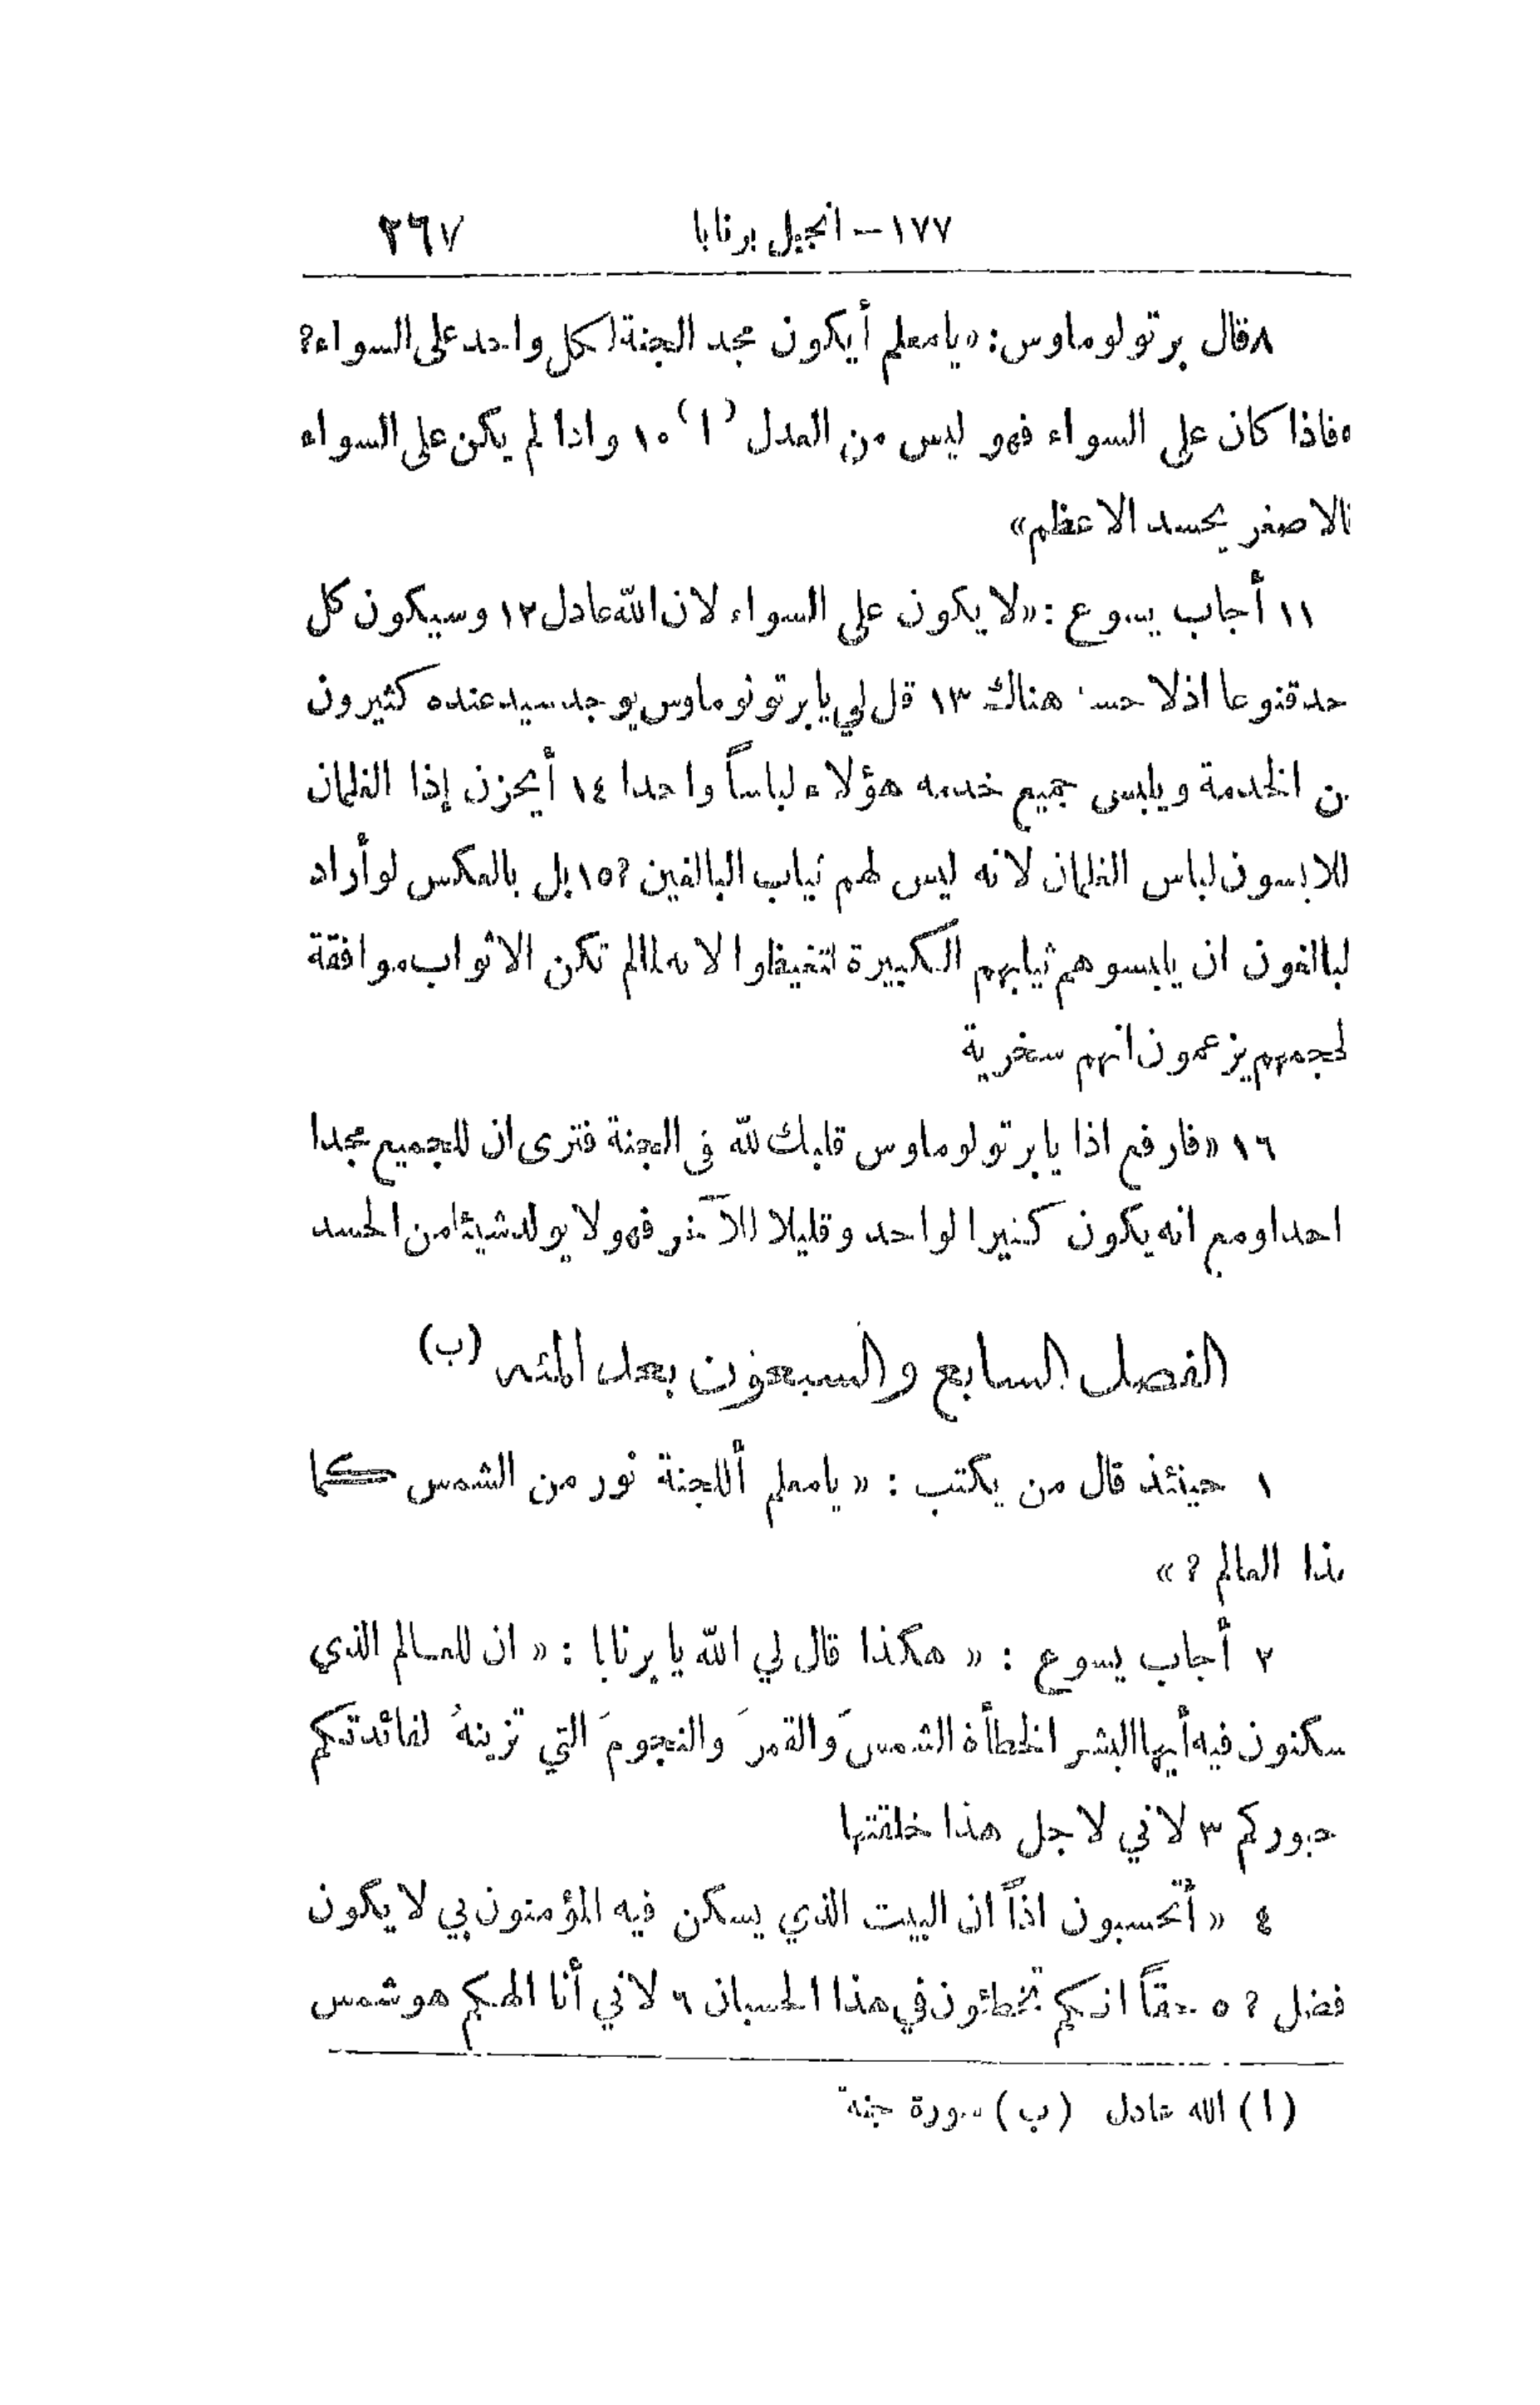 ١٧٧ – انجيل برنابا ٢٦٧
٨قال برتولوماوس: «يامعلم أيكون مجد الجنة لكل واحد على السواء؟
٩فاذا كان على السواء فهو ليس من العدل (ا) ١٠ واذا لم يكن على السواء
فالاصغر يحسد الاعظم»
١١ أجاب يسوع : «لا يكون على السواء لان الله عادل ١٢ وسيكون كل
حد قنوعا اذ لا حسد هناك ١٣ قل لي يا برتولوماوس يوجد سيد عنده كثيرون
ن الخدمة ويلبس جميع خدمه هؤلاء لباساً واحدا ١٤ أيحزن إذا الغلمان
للابسون لباس الغلمان لانه ليس لهم ثياب البالغين ؟ ١٥ بل بالعكس لو أراد
لبالغون ان يلبسوهم ثيابهم الكبيرة لتغيظوا لانه لما لم تكن الاثواب موافقة
لحجمهم يزعمون انهم سخرية
١٦ «فارفع اذا يا برتولوماوس قلبك لله في الجنة فترى ان للجميع مجدا
احدا ومع انه يكون كثيرا لواحد وقليلا للآخر فهو لا يولد شيئا من الحسد
الفصل السابع والسبعون بعد المئه (ب)
١ حينئذ قال من يكتب : « يامعلم أللجنة نور من الشمس كما
هذا العالم ؟ »
٢ أجاب يسوع : « هكذا قال لي الله يا برنابا : « ان للعالم الذي
سكنون فيه أيها البشر الخطأة الشمسَ والقمرَ والنجومَ التي تزينهُ لفائدتكم
حبوركم ٣ لاني لاجل هذا خلقتها
٤ « أتحسبون اذاً ان البيت الذي يسكن فيه المؤمنون بي لا يكون
فضل ؟ ٥ حقاً انكم تخطئون في هذا الحسبان ٦ لاني أنا الهكم هو شمس
(ا) الله عادل (ب) سورة جنة